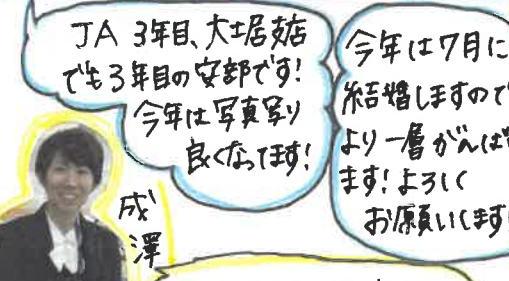 JA 3年目、大土居支店
でも3年目の安部です!
今年は写真写り
良くなってます!
今年は7月に
結婚しますので
より一層がんば
ます!よろしく
お願いします!
成澤